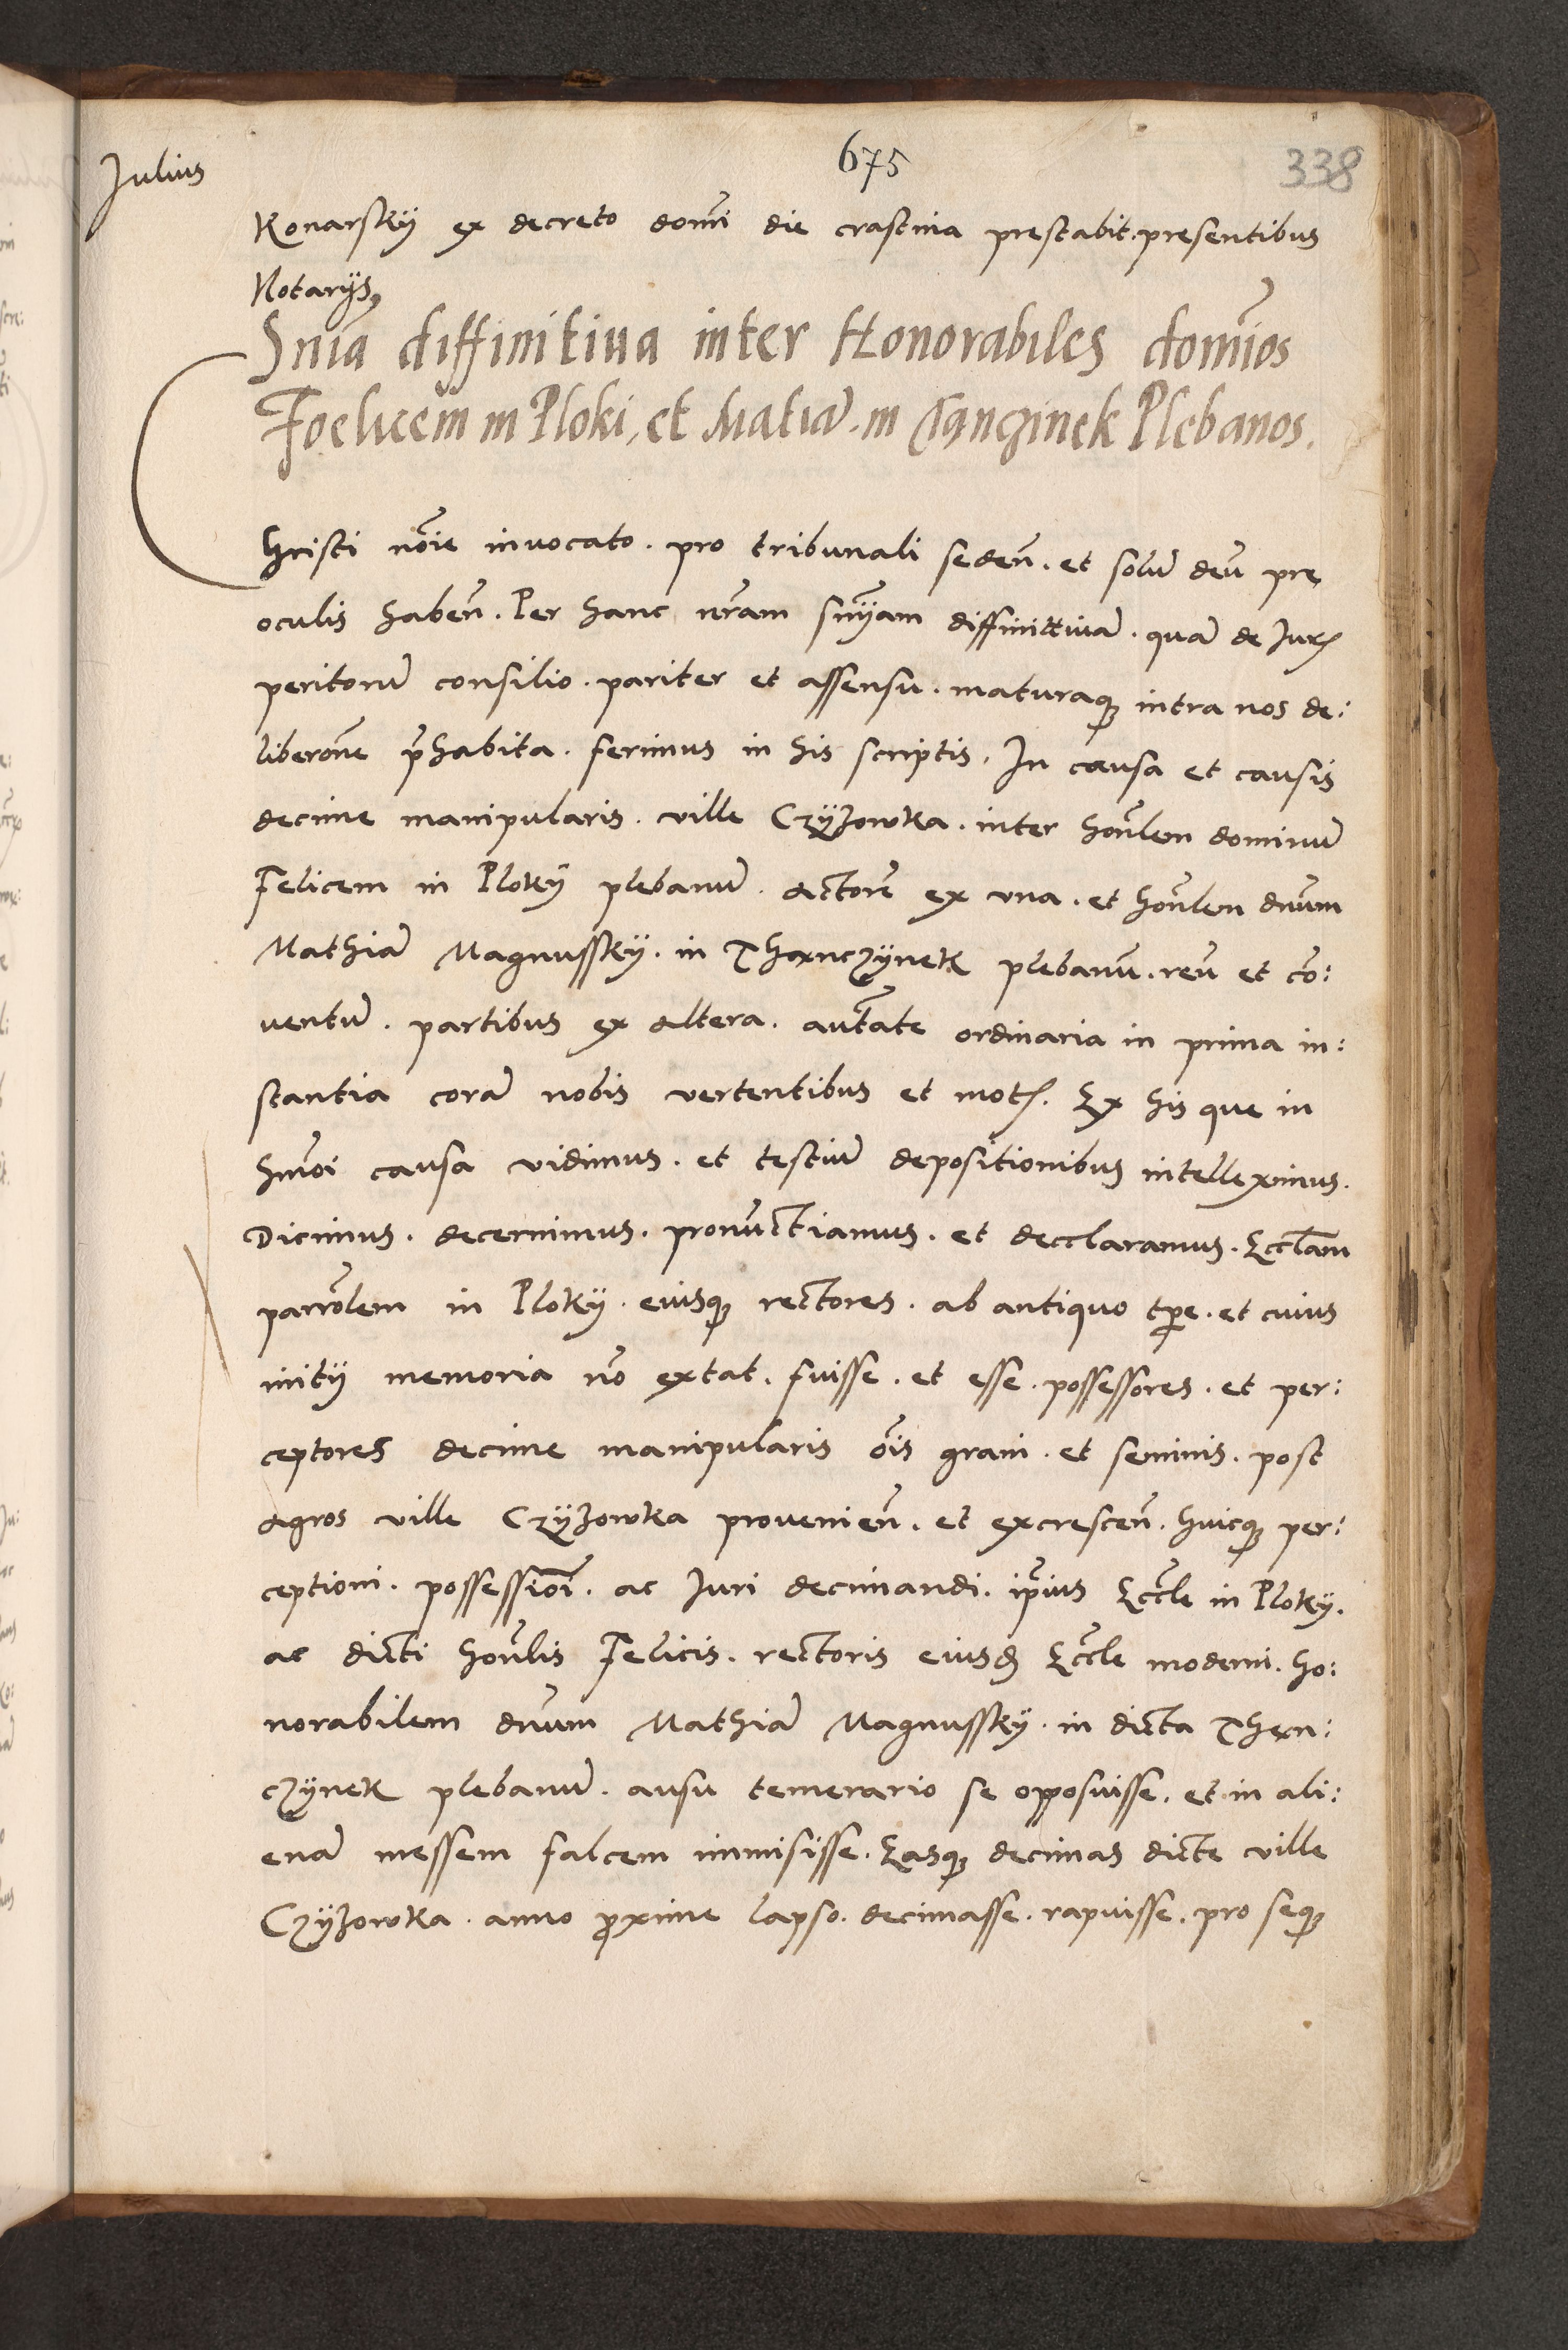 Julius
675
338
Konarskÿ ex decreto domı̃ni die crastina prestabit. presentibus
Notarÿs,
Snı̃a diffinitiua inter Honorabiles domı̃os
Foelicem in Ploki, et Matiã. in Tanczinek Plebanos.
Christi nõie inuocato. pro tribunali seden̄. et solũ deũ prę
oculis haben̄. Per hanc nr̃am sn̄ÿam diffinittiuã. quã de Jur
peritorũ consilio. pariter et assensu. maturaq; intra nos de:
liberõne p̃habita. ferimus in his scriptis. In causa et causis
decime manipularis. ville Czÿzowka. inter hon̄lem dominũ
Felicem in Plokÿ plebanũ. actorẽ ex vna. et hon̄lem dn̄um
Mathiã Magnusskÿ. in Thanczÿnek plebanũ. reũ et cõ:
uentũ. partibus ex altera. aut̃ate ordinaria in prima in:
stantia corã nobis vertentibus et mot. Ex his que in
hm̄oi causa vidimus. et testiũ depositionibus intelleximus.
Dicimus. decernimus. pronũctiamus. et decclaramus. Eccl̃am
parrõlem in Plokÿ. eiusq; rectores. ab antiquo tp̃e. et cuius
initÿ memoria nõ extat. fuisse. et esse. possessores. et per:
ceptores decime manipularis õis grani. et seminis. post
agros ville Czÿzowka prouenien̄. et excrescen̄. huicq; per:
ceptioni. possessiõi. ac Juri decimandi. ip̃ius Eccl̃e in Plokÿ.
ac dicti hon̄lis Felicis. rectoris eiusd Eccl̃e moderni. ho:
norabilem dn̄um Mathiã Magnusskÿ. in dicta Than:
czÿnek plebanũ. ausu temerario se opposuisse. et in ali:
enã messem falcem immisisse. Easq; decimas dicte ville
Czÿzowka. anno p̃xime lapso. decimasse. rapuisse. pro seq;